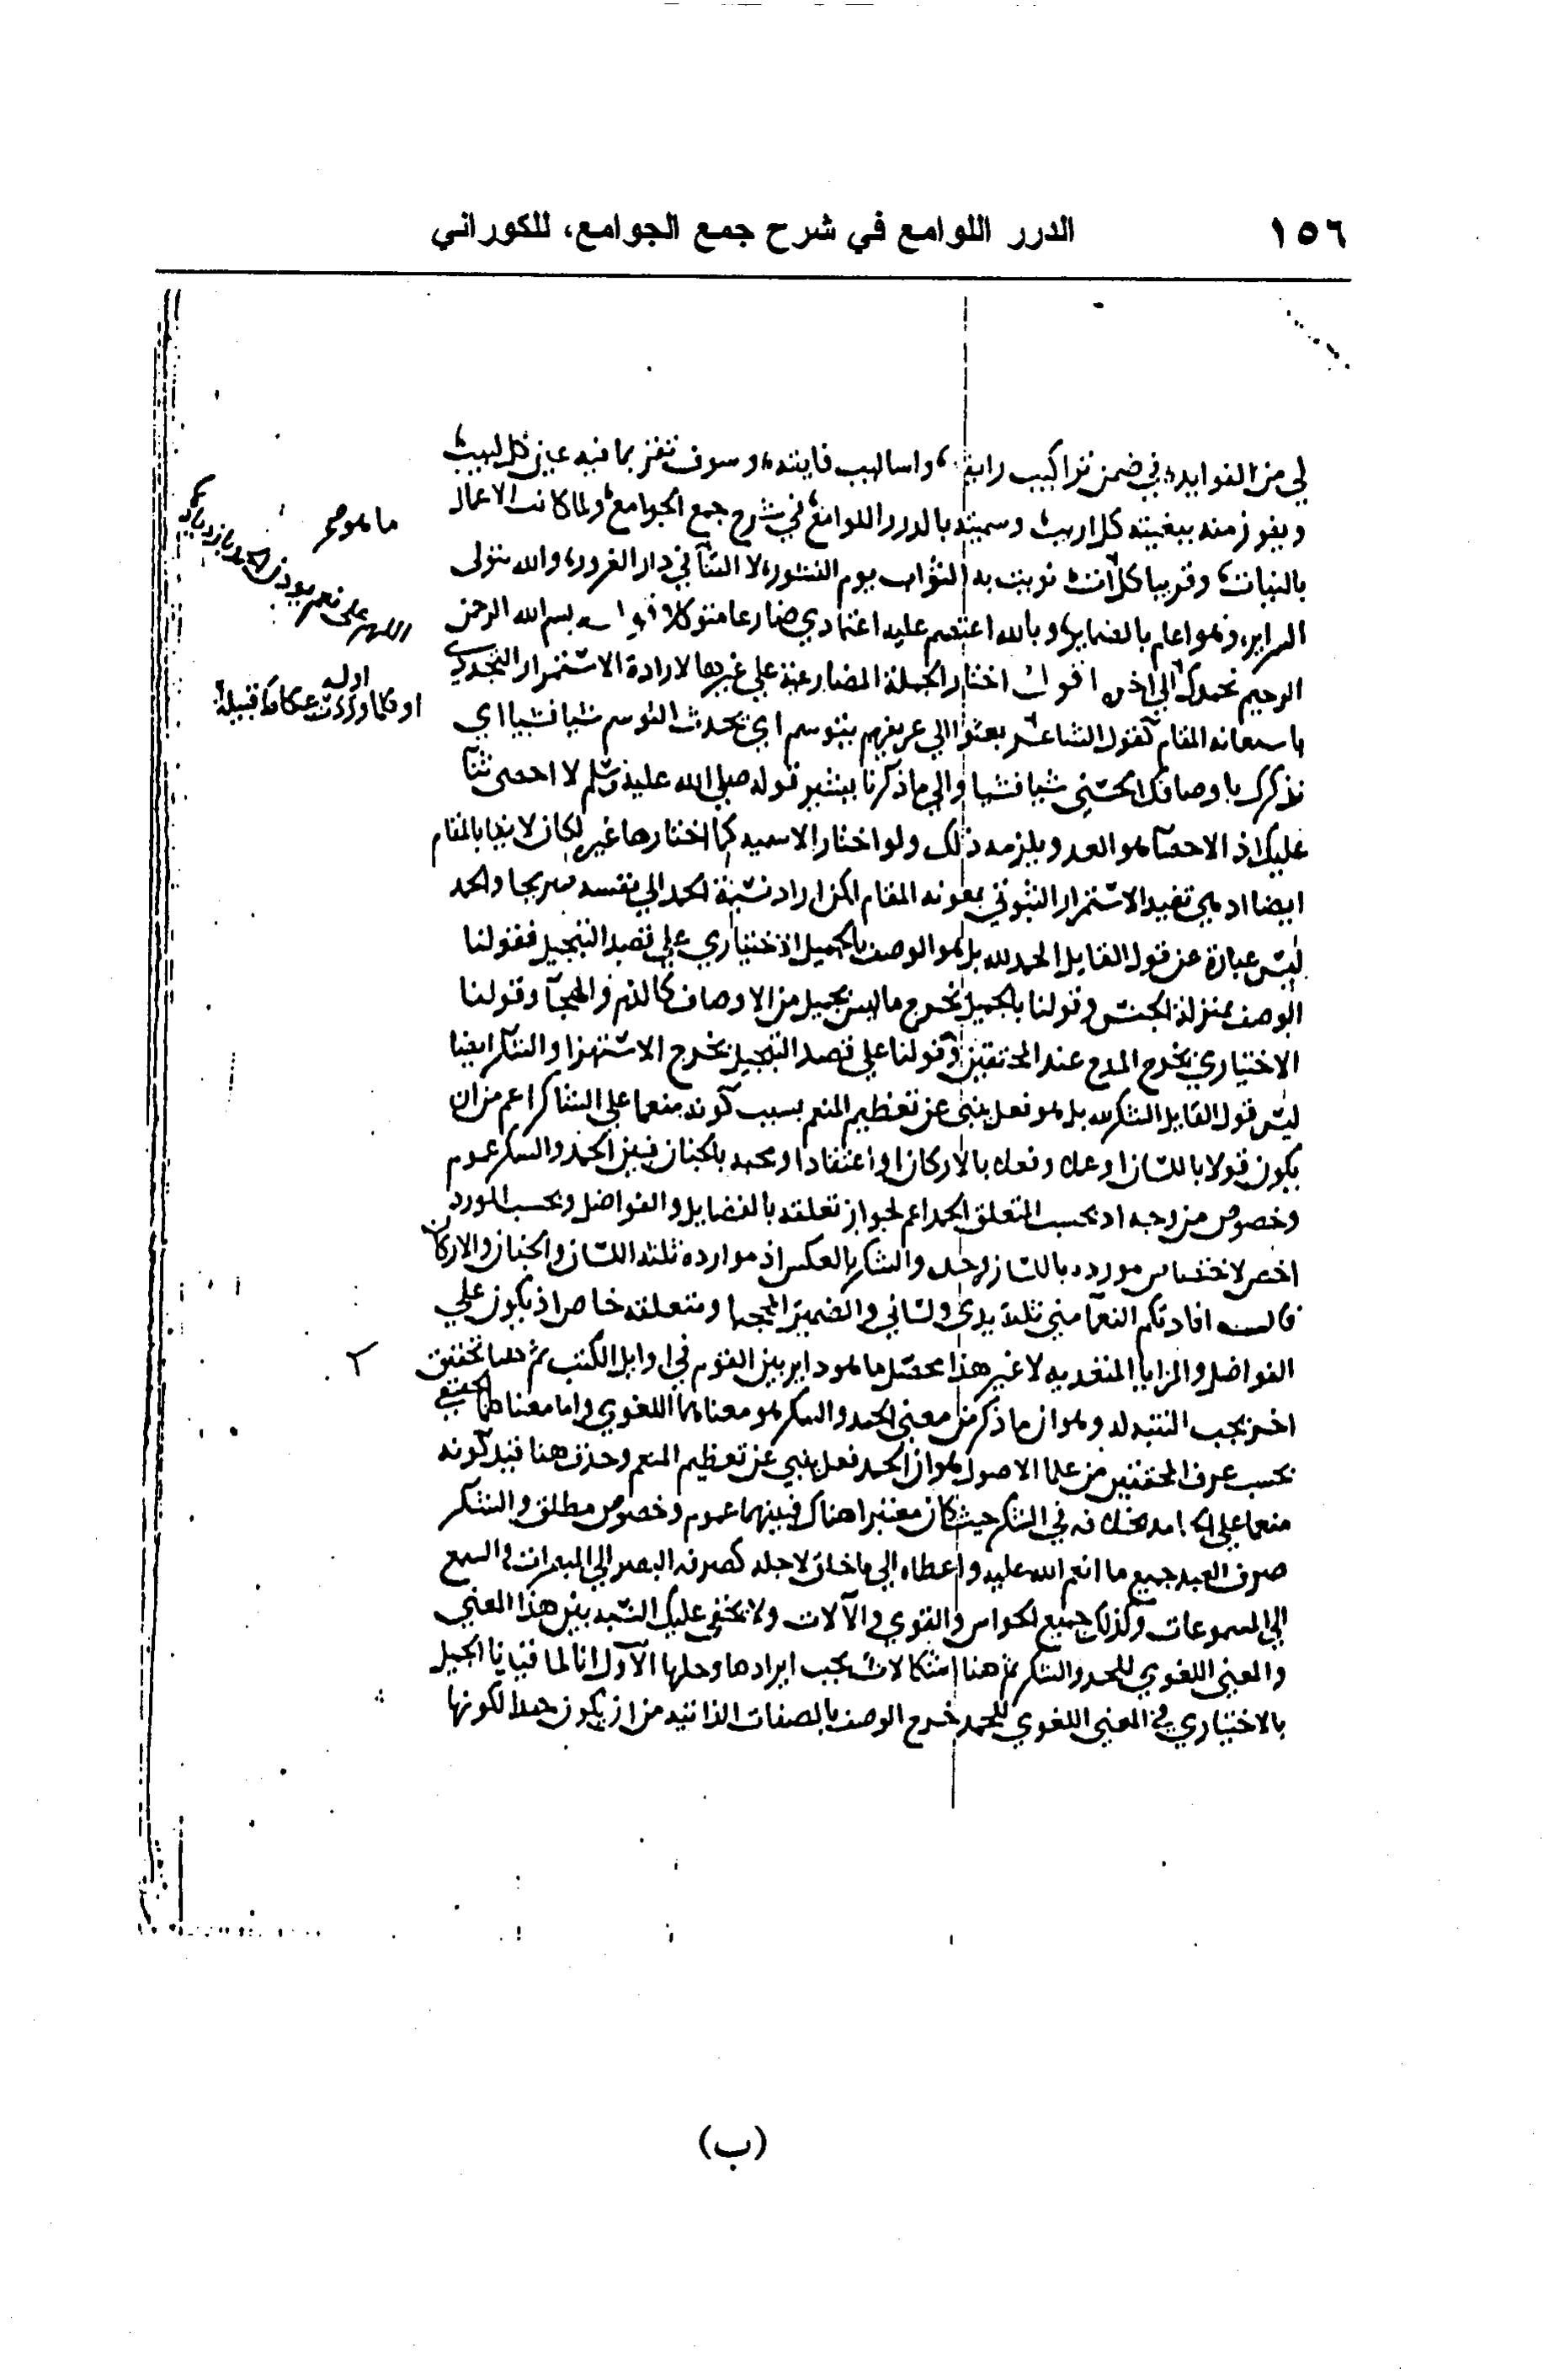 ١٥٦
الدرر اللوامع في شرح جمع الجوامع، للكوراني
لي من الفوايد، في ضمن تراكيب رايقة، واساليب فايقة، وسوف تقر بما فيه عين كل لبيب
ويفوز منه ببغيته كل اريب وسميته بالدرر اللوامع في شرح جمع الجوامع ولما كانت الاعمال
بالنيات، وقريبا كل آت نويت به الثواب يوم النشور، لا الثنآ في دار الغرور، والله يتولى
السراير، وهو اعلم بالضماير، وبالله اعتصم عليه اعتمادي ضارعا متوكلا قوله بسم الله الرحمن
الرحيم نحمدك الى اخره اقول اختار الجملة المضارعية علي غيرها لارادة الاستمرار التجددي
باستعانه المقام كقول الشاعر بعثوا الي عريفهم يتوسم اي يحدث التوسم شيا فشيا اي
نذكرك باوصافك الحسني شيا فشيا والي ما ذكرنا يشير قوله صلي الله عليه وسلم لا احصى ثنآ
عليك اذ الاحصآ هو العد ويلزمه ذلك ولو اختار الاسميه كما اختارها غيره لكان لايقا بالمقام
ايضا اذ هي تفيد الاستمرار الثبوتي بمعونه المقام لكن اراد نسبة الحمد الي نفسه صريحا والحمد
ليس عبارة عن قول القايل الحمد لله بل هو الوصف بالجميل الاختياري علي قصد التبجيل فقولنا
الوصف بمنزلة الجنس وقولنا بالجميل يخرج ما ليس بجميل من الاوصاف كالذم والهجآ وقولنا
الاختياري يخرج المدح عند المحققين وقولنا علي قصد التبجيل يخرج الاستهزا والشكر ايضا
ليس قول القايل الشكر لله بل هو فعل ينبي عن تعظيم المنعم بسبب كونه منعما علي الشاكر اعم من ان
يكون قولا باللسان او عملا وفعلا بالاركان او اعتقادا ومحبه بالجنان فبين الحمد والشكر عموم
وخصوص من وجه اذ بحسب المتعلق الحمد اعم لجواز تعلقه بالفضايل والفواضل وبحسب المورد
اخص لاختصاص مورده باللسان وحده والشكر بالعكس اذ موارده ثلثه اللسان والجنان والاركان
قال افادتكم النعمآ مني ثلثة يدي ولساني والضمير المحجبا ومتعلقه خاص اذ يكون علي
الفواضل والمزايا المتعديه لا غير هذا محصل ما هو داير بين القوم في اوايل الكتب ثم ههنا تحقيق
اخر يجب التنبه له وهو ان ما ذكر من معني الحمد والشكر هو معناهما اللغوي واما معناهما الحقيقي
بحسب عرف المحققين من علما الاصول هو ان الحمد فعل ينبي عن تعظيم المنعم وحذف هنا قيد كونه
منعما علي الحامد بخلافه في الشكر حيث كان معتبرا هناك فبينهما عموم وخصوص مطلق والشكر
صرف العبد جميع ما انعم الله عليه واعطاه الي ما خلق لاجله كصرفه البصر الي المبصرات والسمع
الي المسموعات وكذلك جميع الحواس والقوي والآلات ولا يخفى عليك النسبه بين هذا المعني
والمعني اللغوي للحمد والشكر ثم هنا اشكالات يجب ايرادها وحلها الاول انا لما قيدنا الجميل
بالاختياري في المعني اللغوي للحمد خرج الوصف بالصفات الذاتيه من ان يكون حمدا لكونها
ما هو مح
اللهم على نعم يوذن الحمد بازديادها
اوله
او كلما وردت عكاظ قبيلة
(ب)